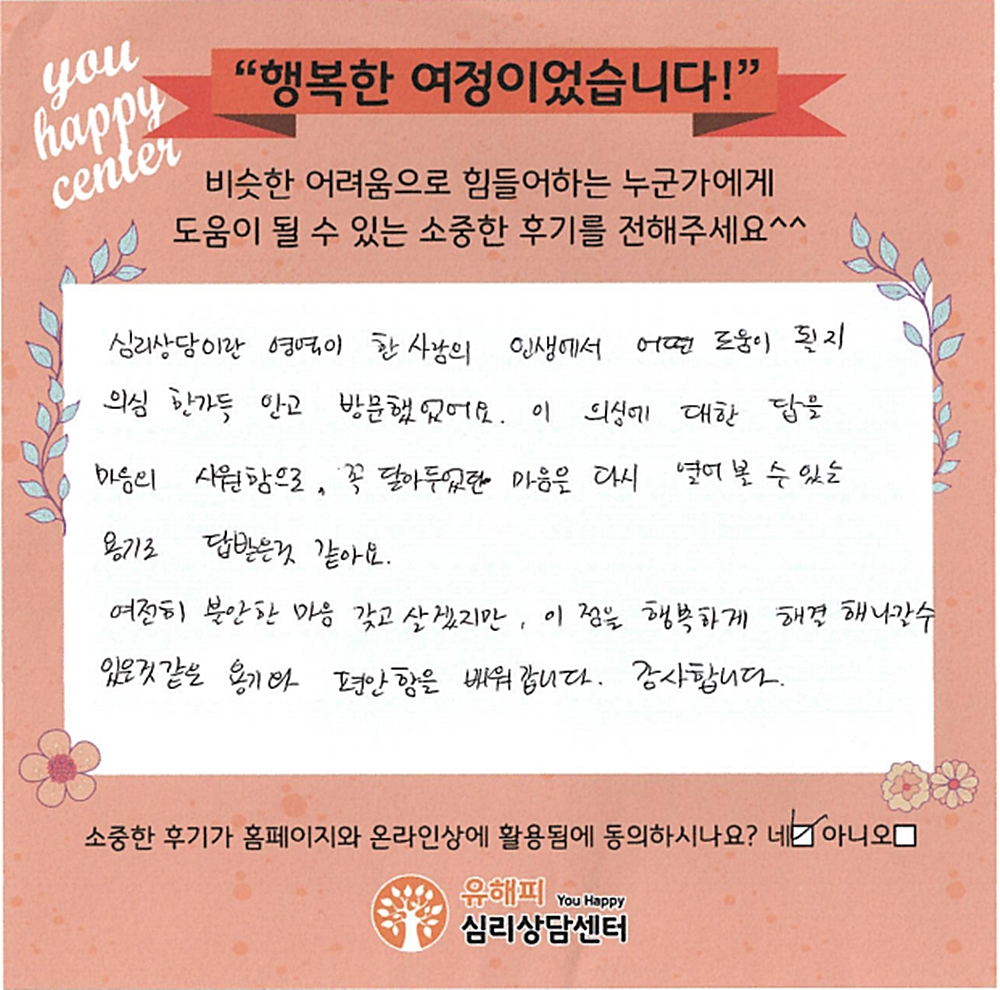 you
happy
center
“행복한 여정이었습니다!”
비슷한 어려움으로 힘들어하는 누군가에게
도움이 될 수 있는 소중한 후기를 전해주세요^^
심리상담이란 영역이 한 사람의 인생에서 어떤 도움이 될지
의심 한가득 안고 방문했었어요. 이 의심에 대한 답을
마음의 시원함으로, 꼭 닫아두었던 마음을 다시 열어 볼 수 있는
용기로 답받은것 같아요.
여전히 불안한 마음 갖고 살겠지만, 이 점을 행복하게 해결 해나갈수
있을것같은 용기와 편안함을 배워갑니다. 감사합니다.
소중한 후기가 홈페이지와 온라인상에 활용됨에 동의하시나요? 네☑ 아니오☐
유해피 You Happy
심리상담센터